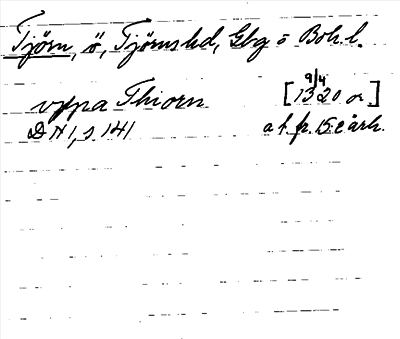 Tjörn, ö, Tjörns hd, Gbg o Boh. l.
uppa Thiorn [1320 9/4 or.]
DN 1, s. 141 a f. fr. 15:e årh.